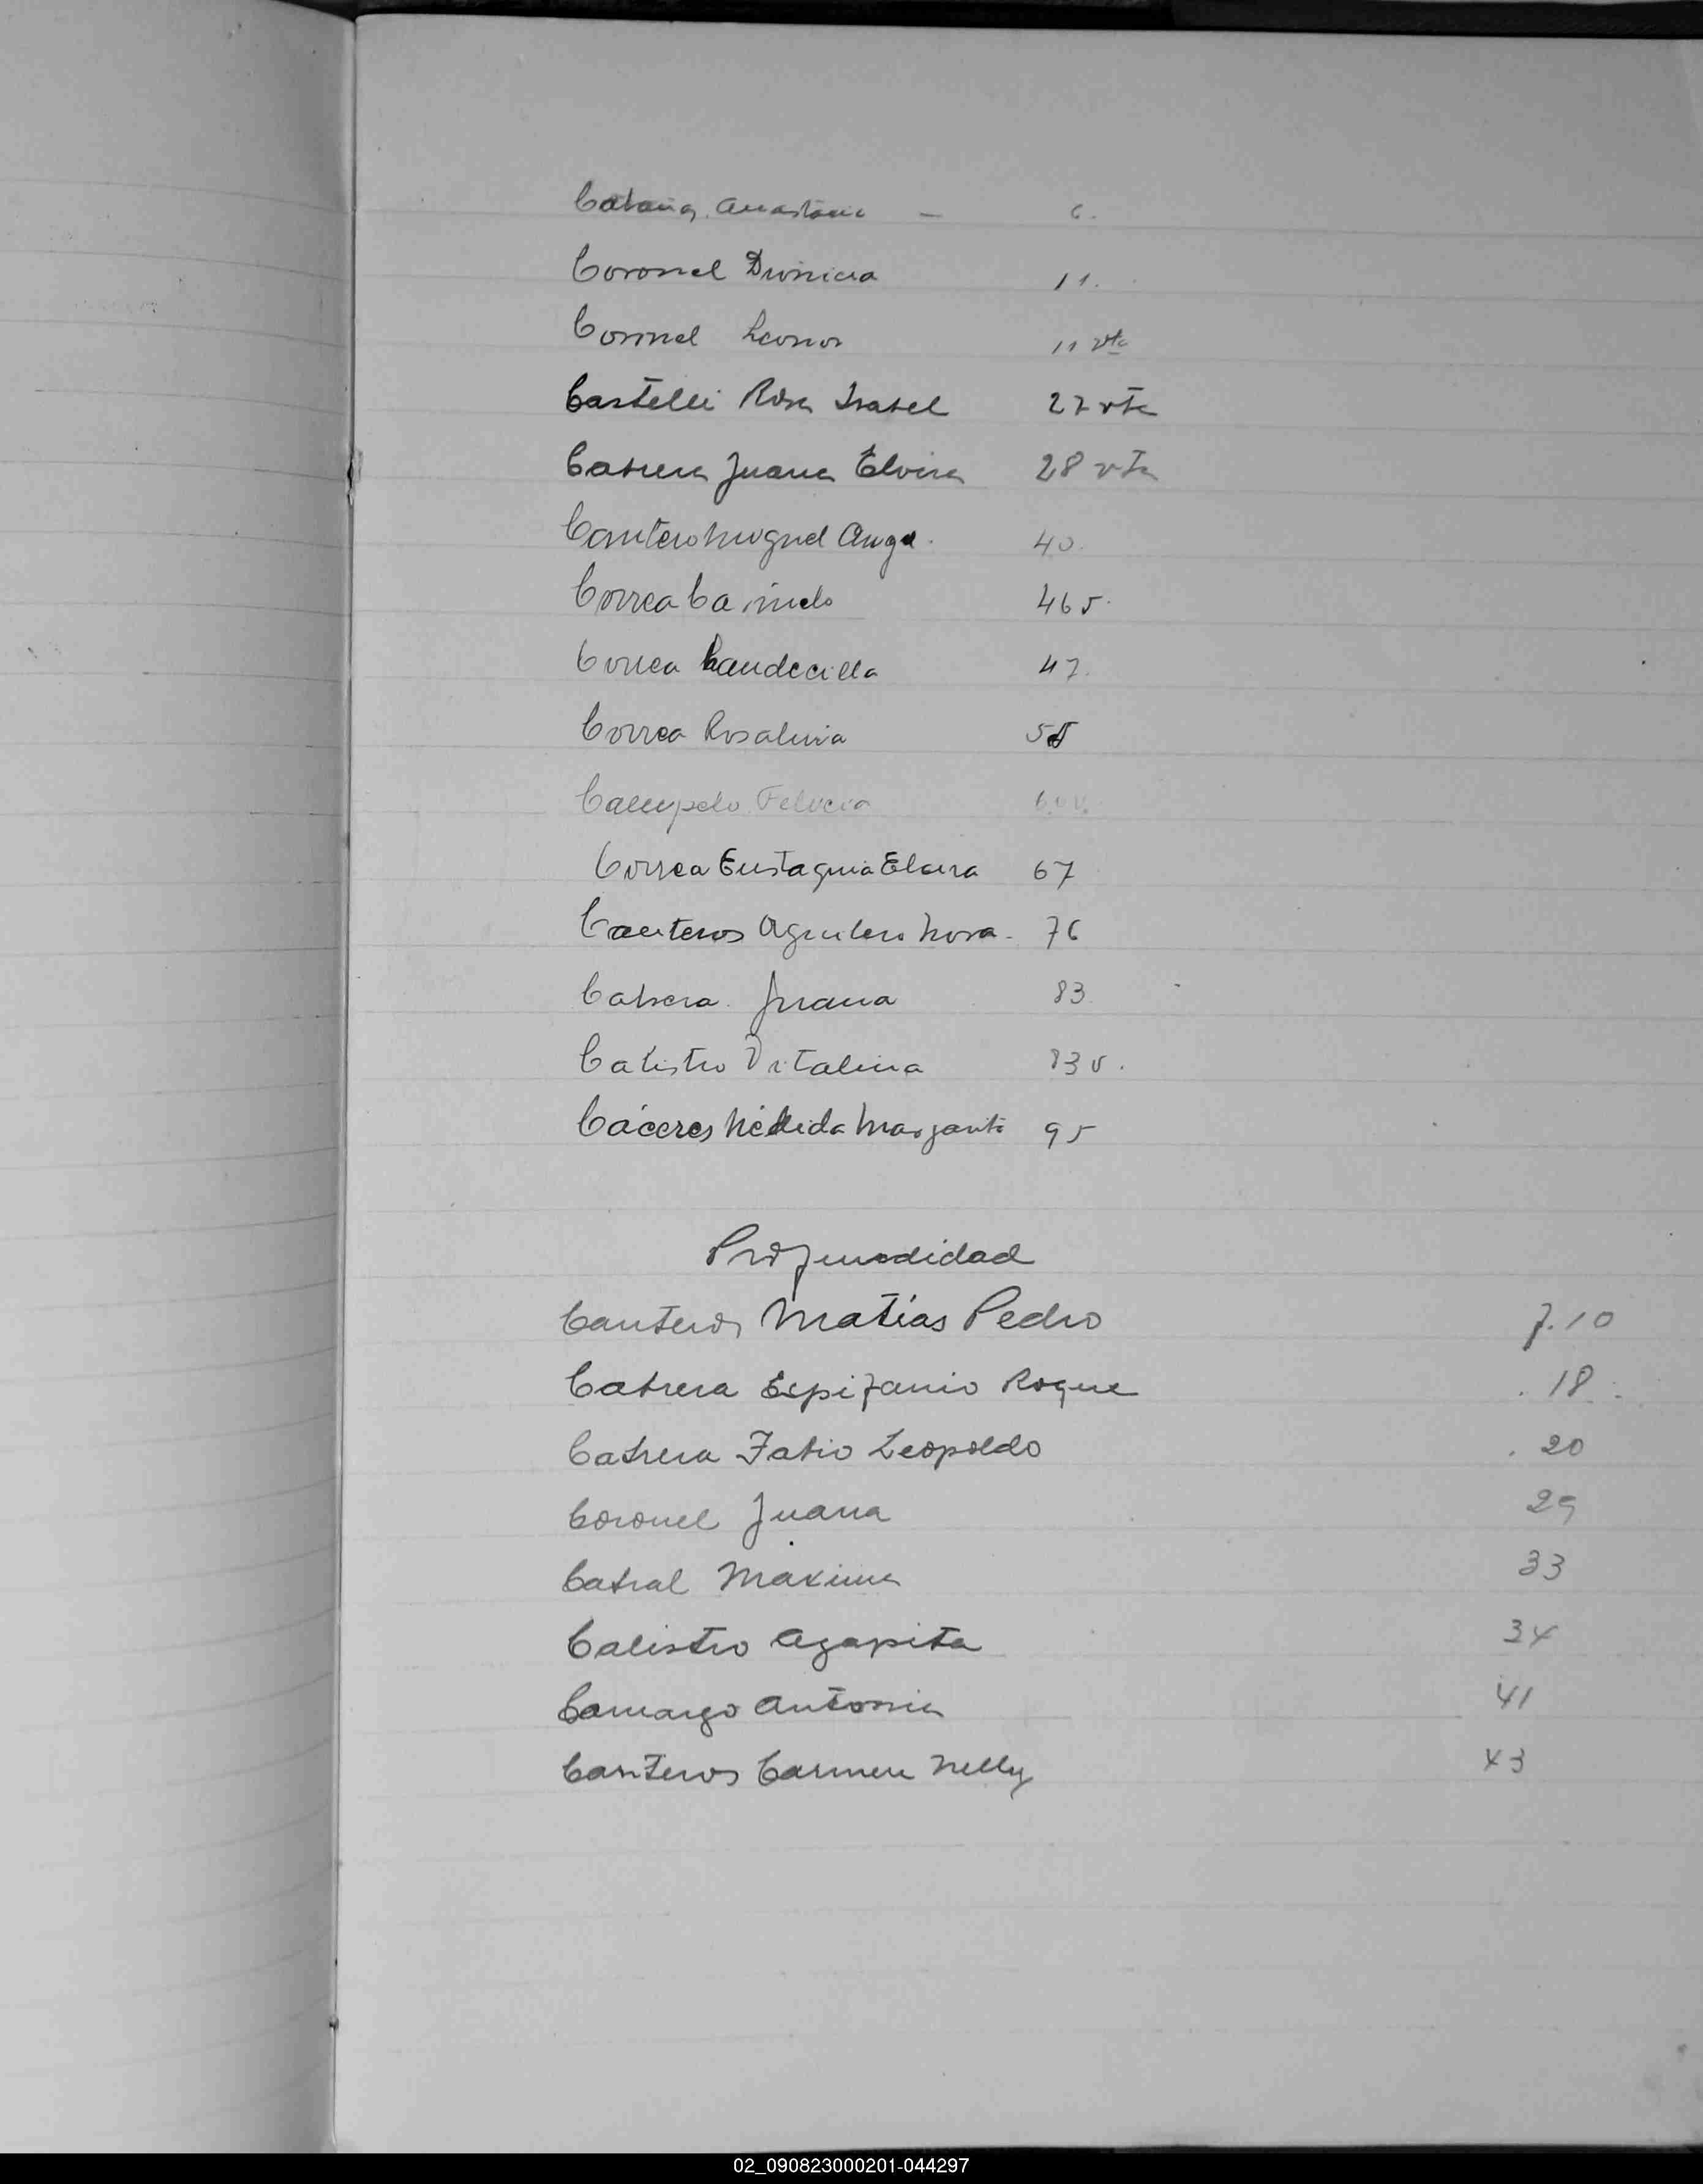 Coronel Dionicia 11.
Coronel Leonor 11 vta
Castelli Rosa Isabel 27 vta
Cabrera Juana Elvira 28 vta
Cantero Miguel Angel. 40.
Correa 46 v.
Correa Laudecilla 47.
Correa Rosalinia
Campelo Felicia 60 v.
Correa Eustaquia Elvira 67
Canteros Aguilero Nora. 76
Cabrera. Juana 83
Calistro Vitalina 83 v.
Cáceres Nélida Margarita 95
Projenodidad
Canteros Matías Pedro f. 10
Cabrera Espifanio Roque 18
Cabrera Fabio Leopoldo 20
Coronel Juana 29
Cabral Maxima 33
Calistro Agapita 34
Camargo Antonia 41
Canteros Carmen Nelly 43
02_090823000201-044297